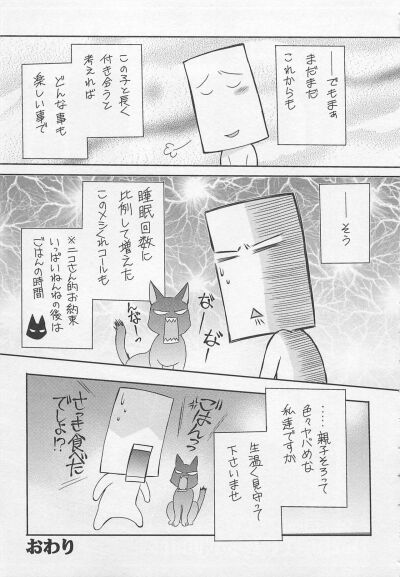 ――でもまぁ
まだまだ
これからも
この子と長く
付き合うと
考えれば
どんな事も
楽しい事で
――そう
睡眠回数に
比例して増えた
このメシくれコールも
※ニコさん的お約束
いっぱいねんねの後は
ごはんの時間
なーなー
んなーっ
……親子そろって
色々ヤバめな
私達ですが
生温く見守って
下さいませ
ごはんっ
さっき食べた
でしょ!?
おわり